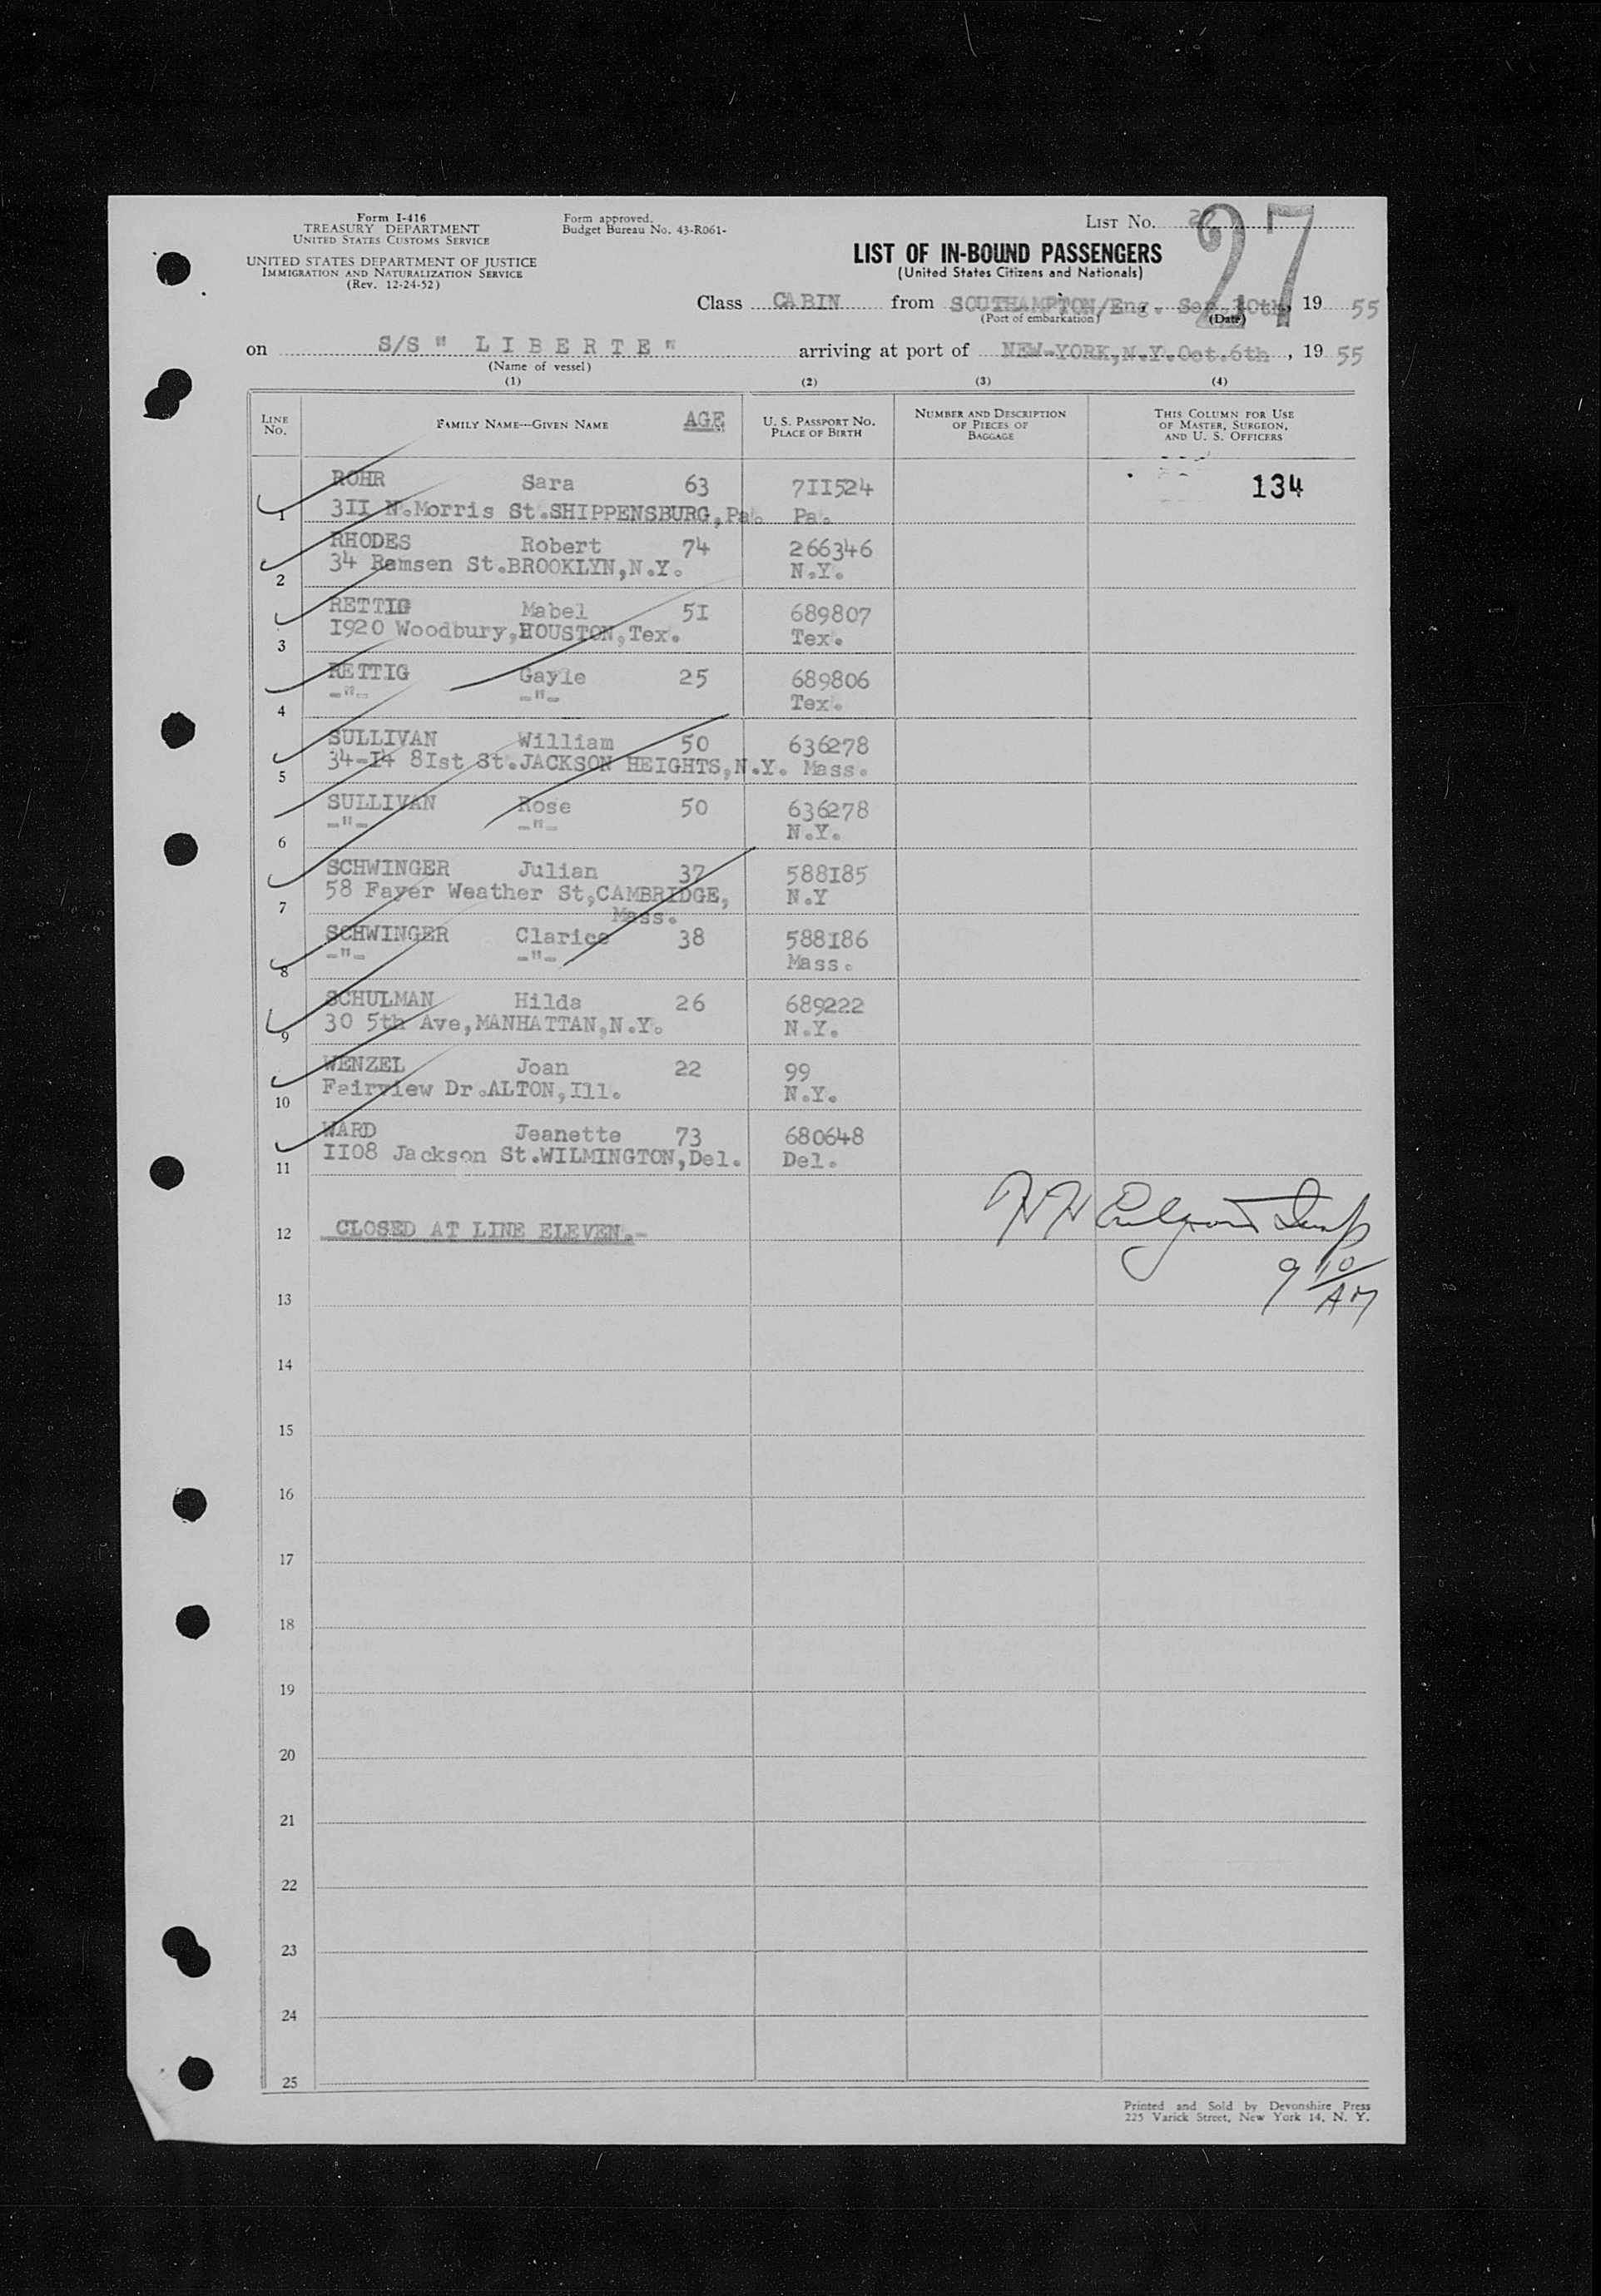 Form I-416
TREASURY DEPARTMENT
UNITED STATES CUSTOMS SERVICE
UNITED STATES DEPARTMENT OF JUSTICE
IMMIGRATION AND NATURALIZATION SERVICE
(Rev. 12-24-52)
Form approved.
Budget Bureau No. 43-R061-
LIST No.
27
LIST OF IN-BOUND PASSENGERS
(United States Citizens and Nationals)
Class CABIN from SOUTHAMPTON/Eng. Sep.30th, 19 55
(Port of embarkation) (Date)
on S/S " L I B E R T E " arriving at port of NEW-YORK,N.Y.Oct.6th , 19 55
(Name of vessel)
(1) (2) (3) (4)
LINE No. FAMILY NAME—GIVEN NAME AGE U. S. PASSPORT No. PLACE OF BIRTH NUMBER AND DESCRIPTION OF PIECES OF BAGGAGE THIS COLUMN FOR USE OF MASTER, SURGEON, AND U. S. OFFICERS
ROHR Sara 63 7II524 134
1 3II N.Morris St.SHIPPENSBURG,Pa. Pa.
RHODES Robert 74 266346
2 34 Remsen St.BROOKLYN,N.Y. N.Y.
RETTIG Mabel 5I 689807
3 I920 Woodbury,HOUSTON,Tex. Tex.
RETTIG Gayle 25 689806
4 -"- -"- Tex.
SULLIVAN William 50 636278
5 34-I4 8Ist St.JACKSON HEIGHTS,N.Y. Mass.
SULLIVAN Rose 50 636278
6 -"- -"- N.Y.
SCHWINGER Julian 37 588I85
7 58 Fayer Weather St,CAMBRIDGE, N.Y
Mass.
SCHWINGER Clarice 38 588I86
8 -"- -"- Mass.
SCHULMAN Hilda 26 689222
9 30 5th Ave,MANHATTAN,N.Y. N.Y.
WENZEL Joan 22 99
10 Fairview Dr.ALTON,Ill. N.Y.
WARD Jeanette 73 680648
11 II08 Jackson St.WILMINGTON,Del. Del.
12 CLOSED AT LINE ELEVEN.-
9 10/AM
13
14
15
16
17
18
19
20
21
22
23
24
25
Printed and Sold by Devonshire Press
225 Varick Street, New York 14, N. Y.